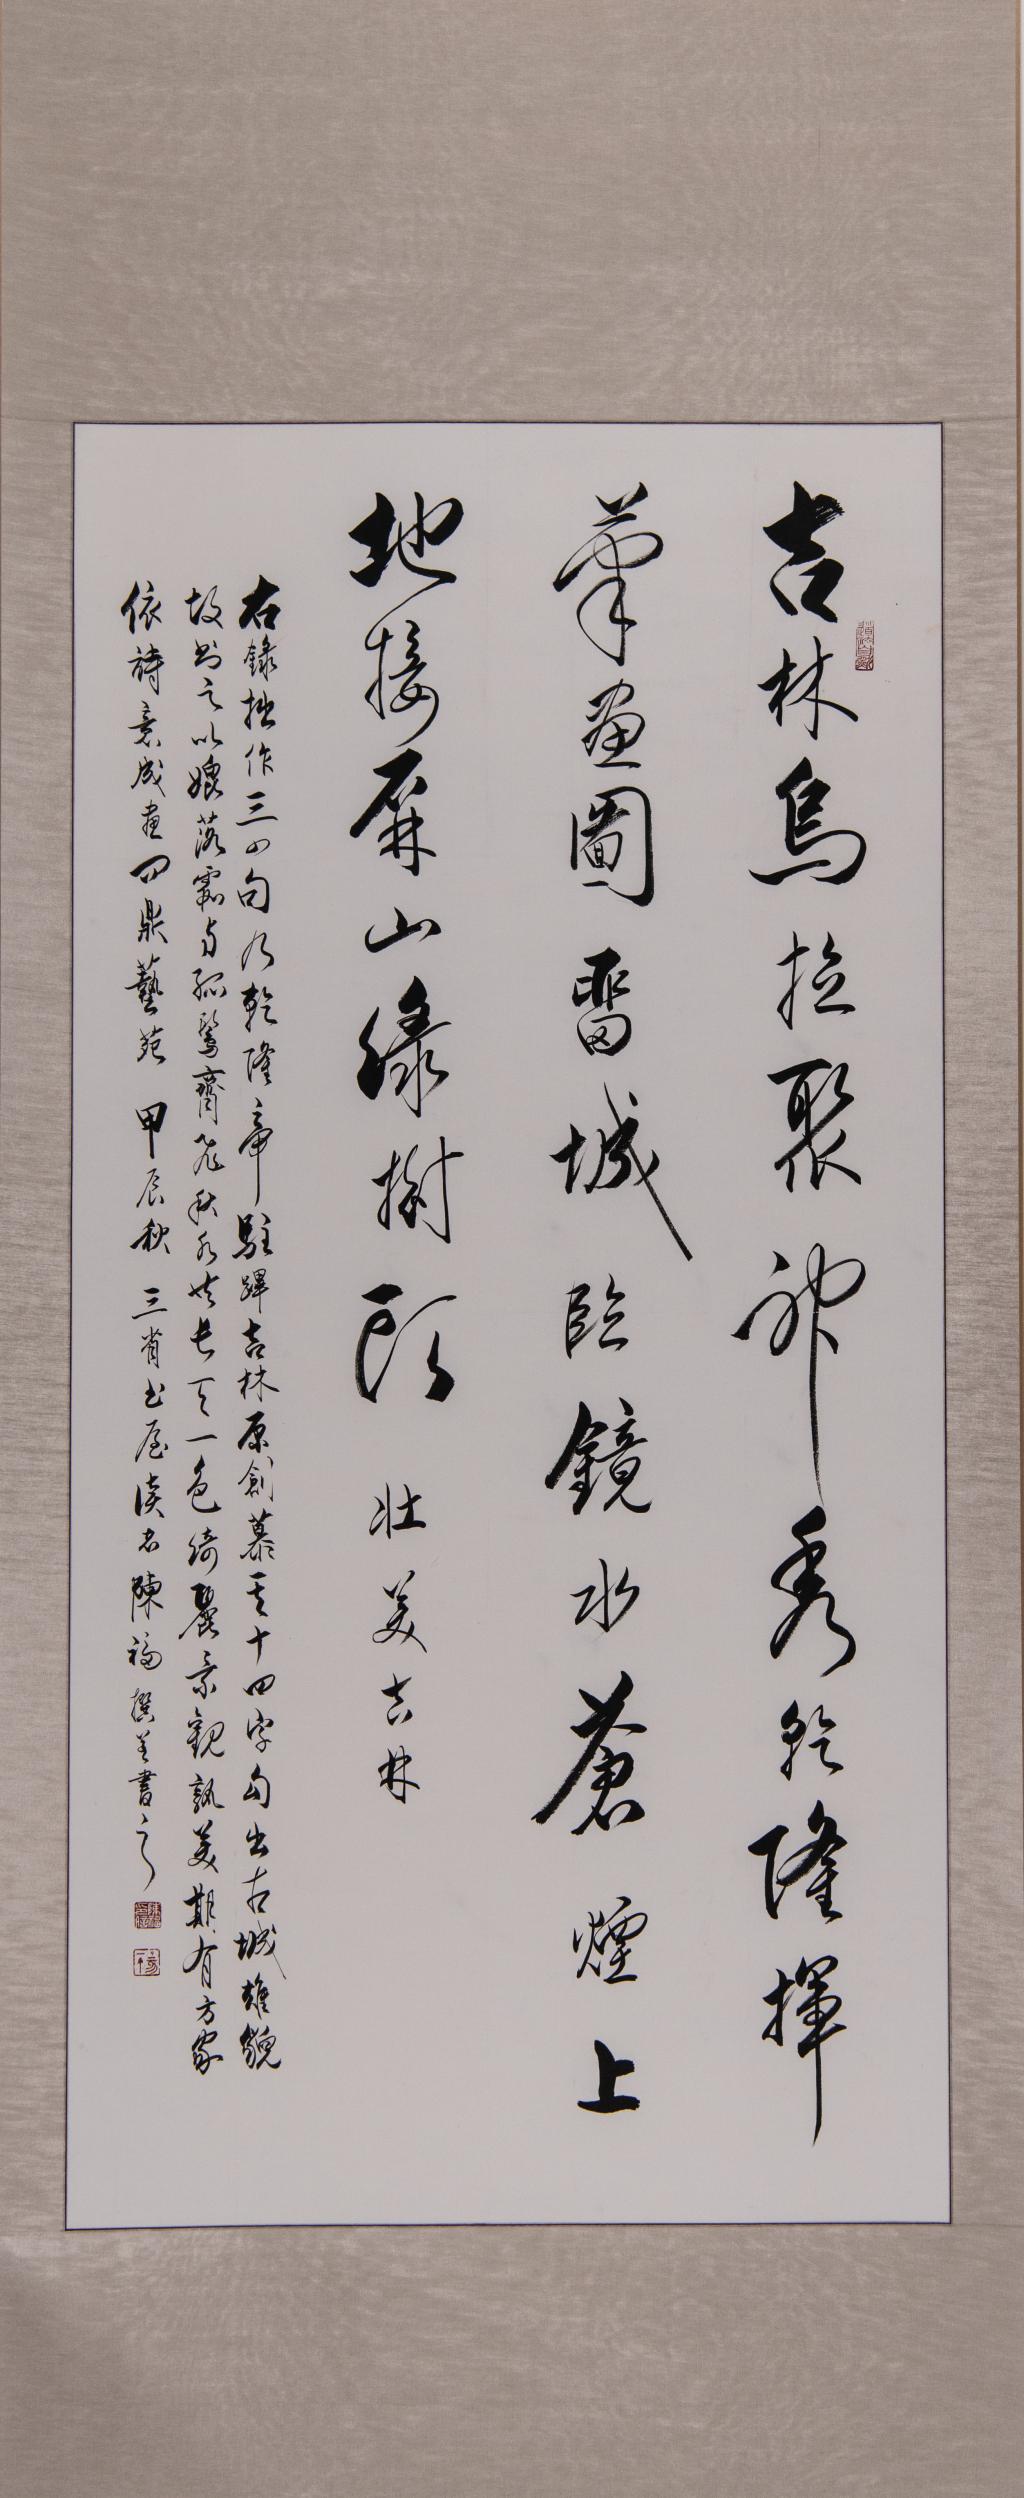 吉林烏拉聚神秀乾隆揮
筆畫圖留城臨鏡水蒼煙上
地接屏山綠樹頭 壯美吉林
右錄拙作三四句乃乾隆帝駐蹕吉林原創慕其十四字勾出古城雄貌
故書之以媲落霞與孤鶩齊飛秋水共長天一色綺麗景觀孰美期有方家
依詩意成畫四鼎藝苑 甲辰秋 三省書屋陳福撰並書之